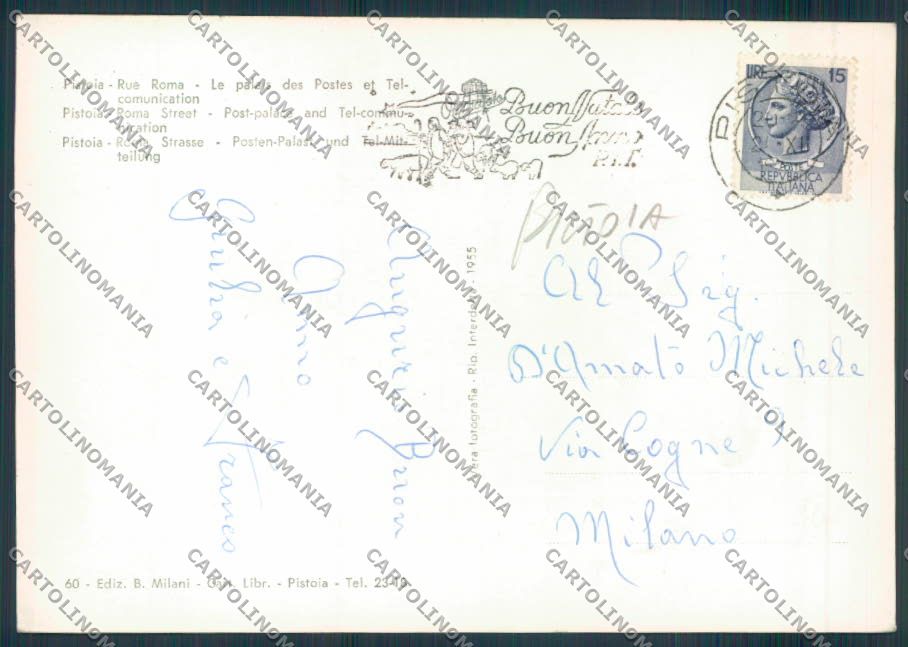 Pistoia - Rue Roma - Le palais des Postes et Tel-
comunication
Pistoia - Roma Street - Post-palace and Tel-commu-
nication
Pistoia - Roma Strasse - Posten-Palast und Tel-Mit-
teilung
Buon
Buon
LIRE 15
POSTE
REPVBBLICA
ITALIANA
PISTOIA
Auguri Buon
Anno
Giulia e Franco
Vera fotografia - Rip. Interdetta - 1955
Al Sig.
D'Amato Michele
Via Cogne
Milano
60 - Ediz. B. Milani - Cart. Libr. - Pistoia - Tel.
CARTOLINOMANIA